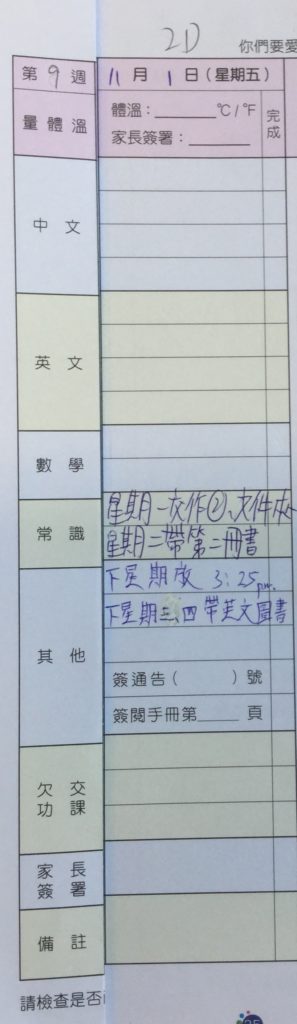 2D
你們要愛
第9週
11月1日(星期五)
量體溫
體溫：______℃/℉
家長簽署：______
完成
中文
英文
數學
常識
星期一交作②、文件夾
星期二帶第二冊書
其他
下星期放 3:25pm.
下星期三、四帶英文圖書
簽通告(　　)號
簽閱手冊第____頁
欠交功課
家長簽署
備註
請檢查是否
25